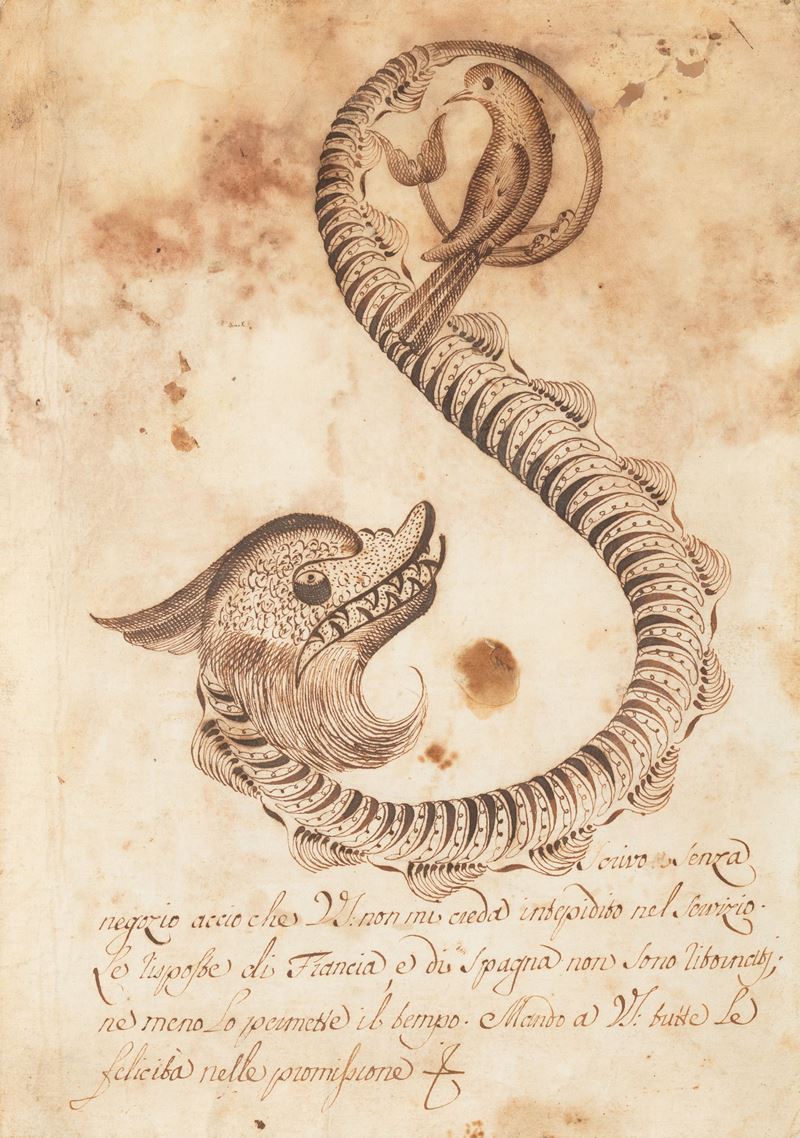 Scrivo Senza
negozio accio che VS: non mi creda intepidito nel Servizio.
Le risposte di Francia, e di Spagna non sono
ne meno Lo permette il tempo. Mando a VS: tutte Le
felicità nelle promissione